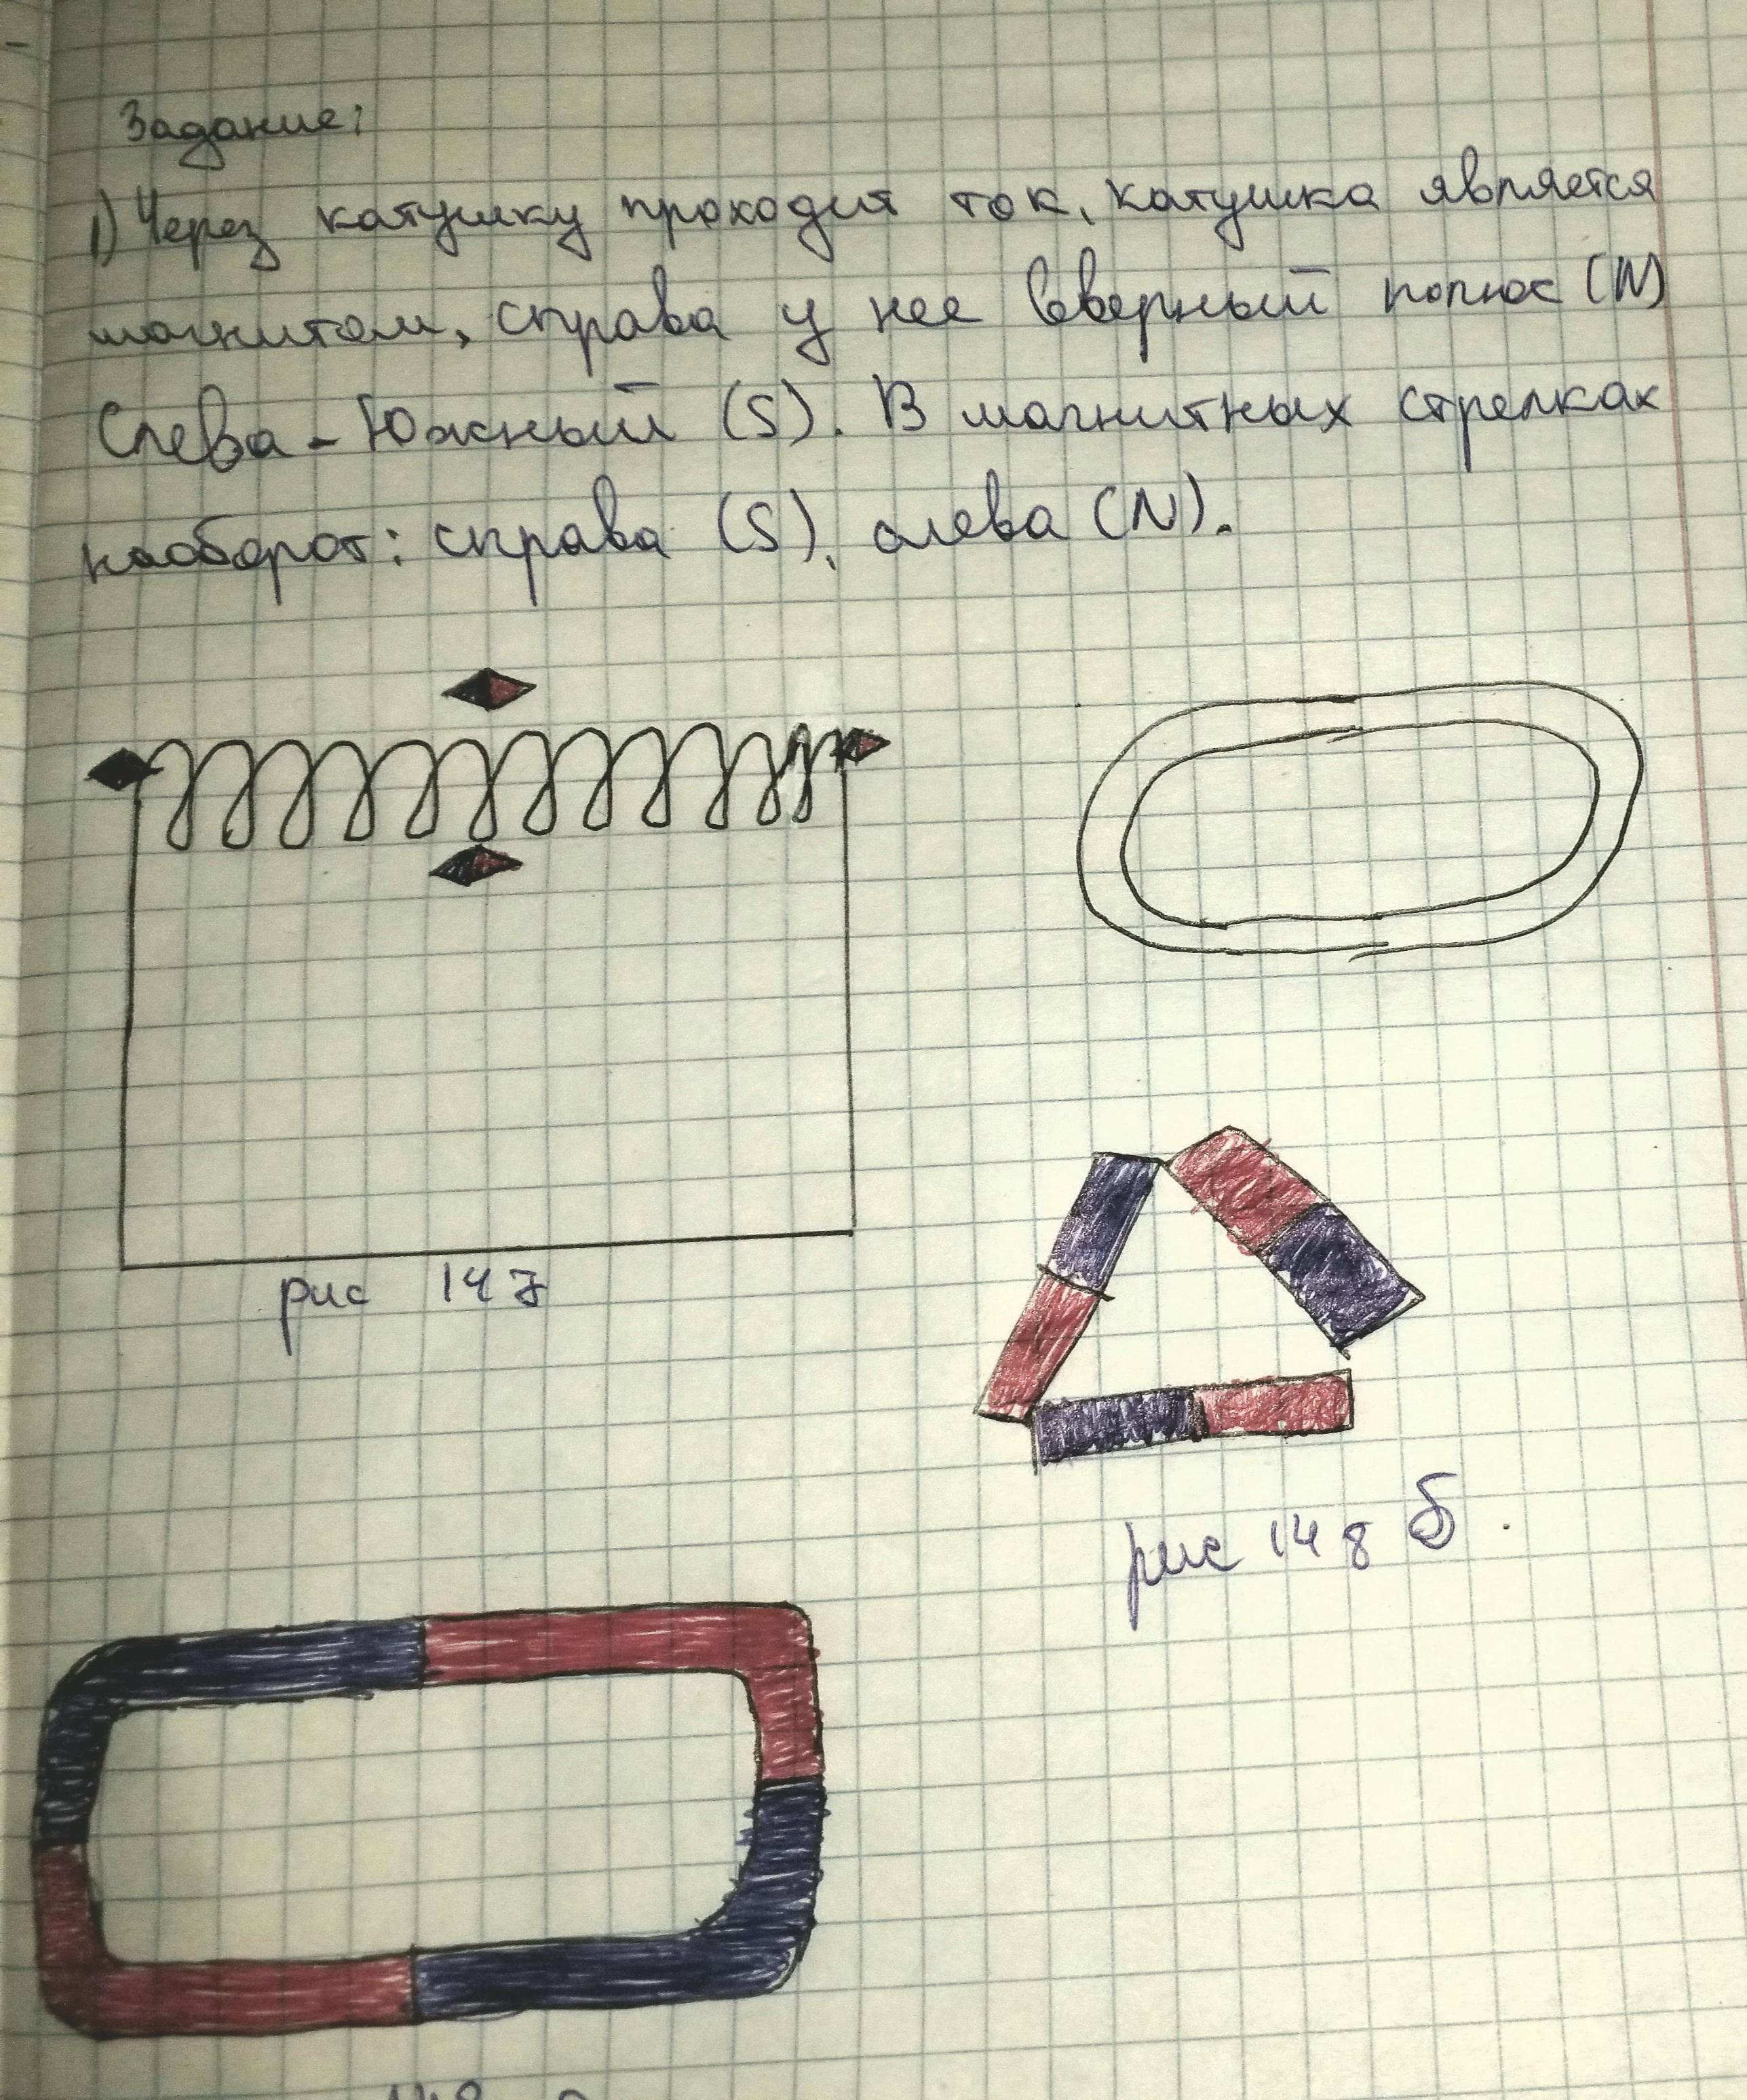 Задание:
1) Через катушку проходит ток, катушка является
магнитом, справа у нее Северный полюс (N)
Слева - Южный (S). В магнитных стрелках
наоборот: справа (S), слева (N).
рис 147
рис 148 б.
148